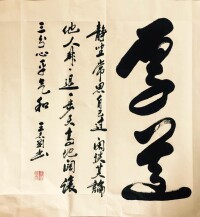 厚道
静坐常思自己过闲谈莫論
他人非退一步天高地阔讓
三分心平气和